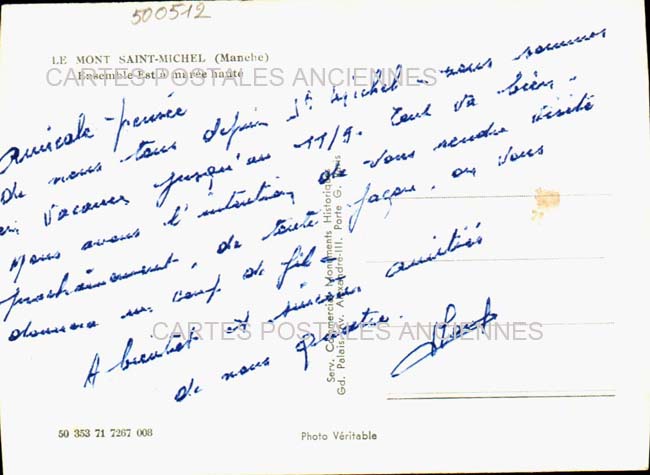 500512
LE MONT SAINT-MICHEL (Manche)
Ensemble Est à marée haute
CARTES POSTALES ANCIENNES
Amicale pensée
de nous tous depuis St Michel - nous sommes
en vacances jusqu'au 11/9. Tout va bien.
Nous avons l'intention de vous rendre visite
prochainement, de toute façon, on vous
donnera un coup de fil.
A bientôt et sincères amitiés
de nous quatre.
CARTES POSTALES ANCIENNES
Serv. Commercial Monuments Historiques
Gd. Palais, Av. Alexandre-III. Porte G.
50 353 71 7267 008
Photo Véritable